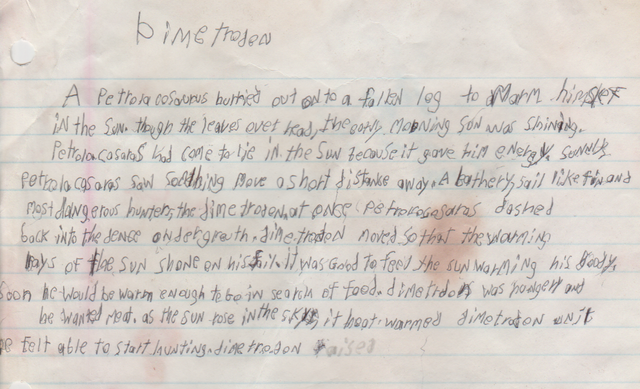 Dimetroden
A Petrolacosaurus burried out onto a fallen log to warm himself
in the sun. though the leaves over head, the early morning sun was shining.
Petrolacosaras had come to lie in the sun because it gave him energy. sunnly
Petrolacosaras saw somthing move a short distance away. A leathery, sail like fin and
most dangerous hunter, the dimetrodon, at onse Petrolacosaras dashed
back into the dence ondergrowth. dimetrodon moved so that the warming
rays of the sun shone on his sail. It was Good to feel the sun warming his body.
Soon he would be warm enough to be in search of food. dimetrodon was hungery and
he wanted meat. as the sun rose in the sky, it heat warmed dimetrodon until
he felt able to start hunting. dimetrodon raised